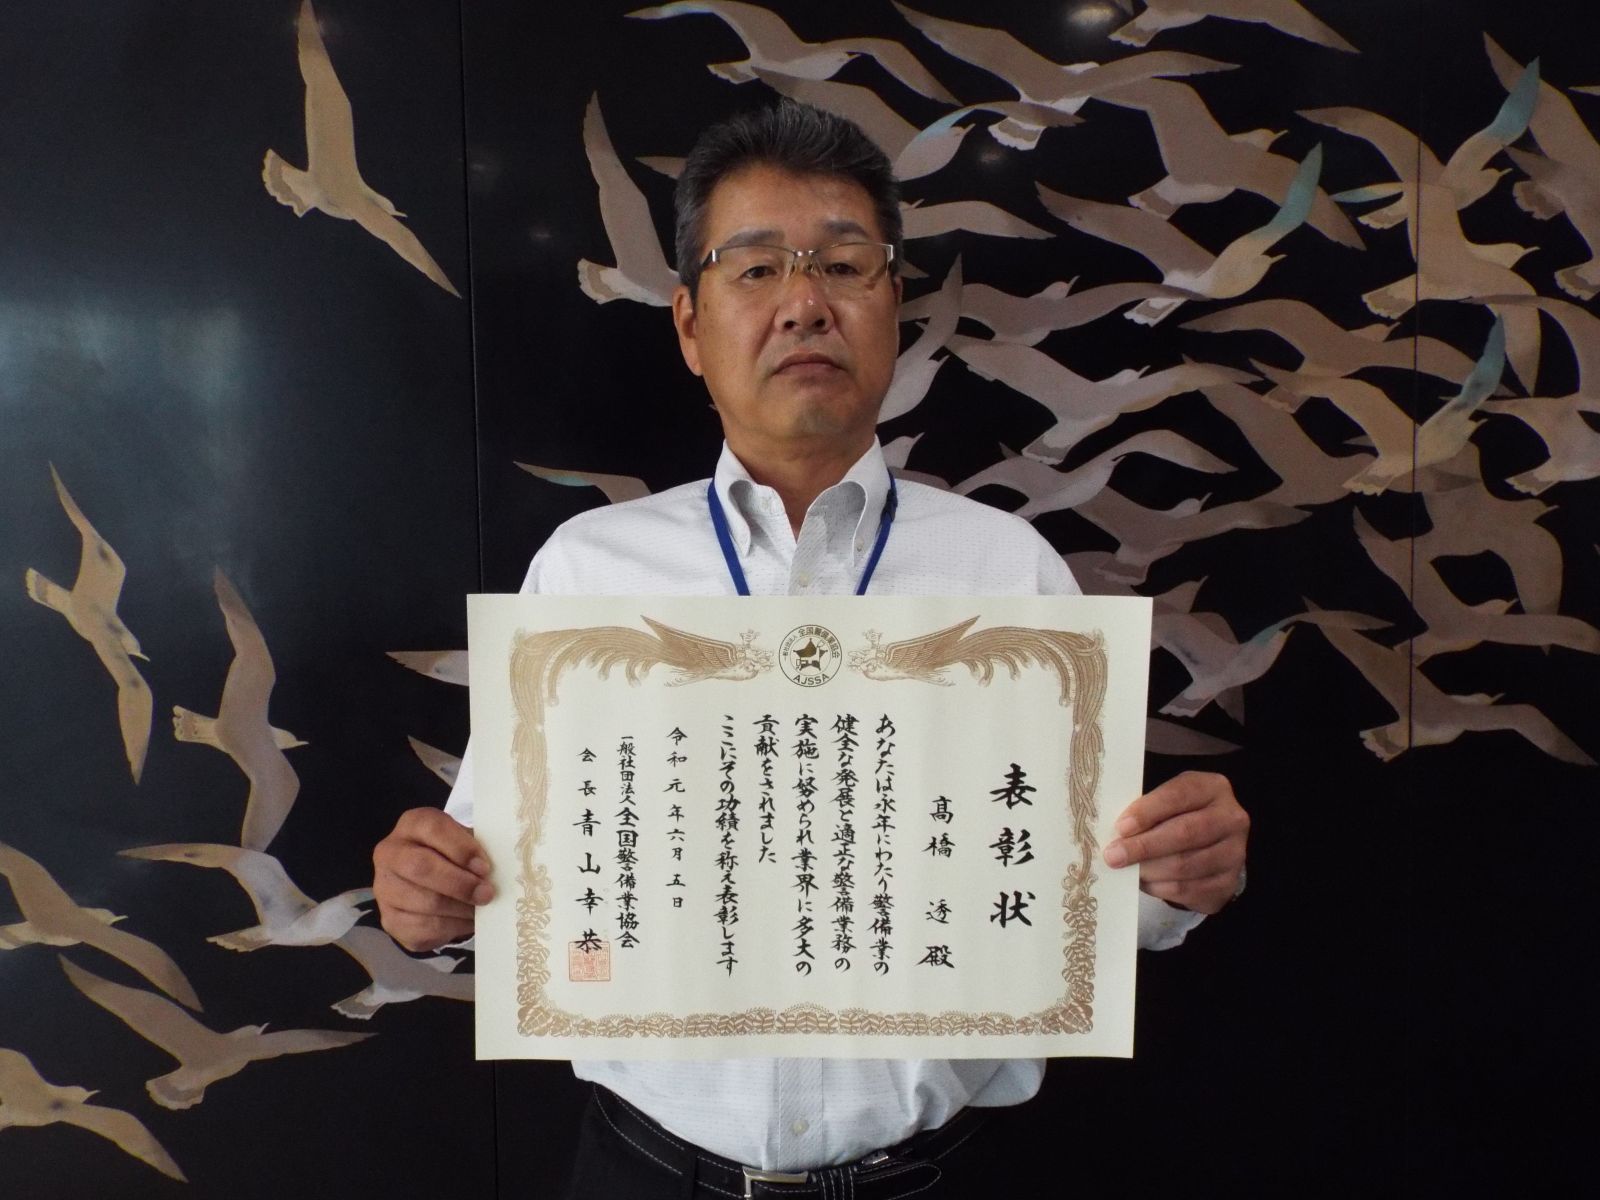 一般社団法人 全国警備業協会
AJSSA
表彰状
髙橋 透 殿
あなたは永年にわたり警備業の
健全な発展と適正な警備業務の
実施に努められ業界に多大の
貢献をされました
ここにその功績を称え表彰します
令和元年六月五日
一般社団法人全国警備業協会
会長 青山幸恭